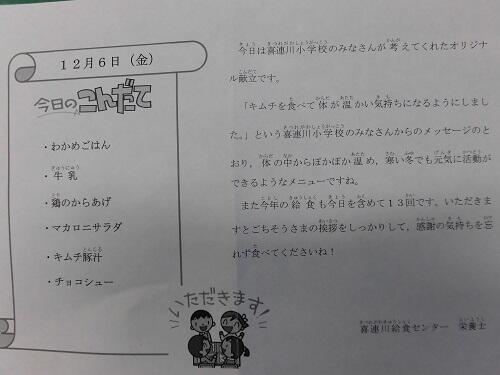 12月6日（金）
今日のこんだて
・わかめごはん
・牛乳
・鶏のからあげ
・マカロニサラダ
・キムチ豚汁
・チョコシュー
いただきます!
今日は喜連川小学校のみなさんが考えてくれたオリジナ
ル献立です。
「キムチを食べて体が温かい気持ちになるようにしまし
た。」という喜連川小学校のみなさんからのメッセージのと
おり，体の中からぽかぽか温め，寒い冬でも元気に活動が
できるようなメニューですね。
また今年の給食も今日を含めて13回です。いただきま
すとごちそうさまの挨拶をしっかりして，感謝の気持ちを忘
れず食べてくださいね！
喜連川給食センター　栄養士